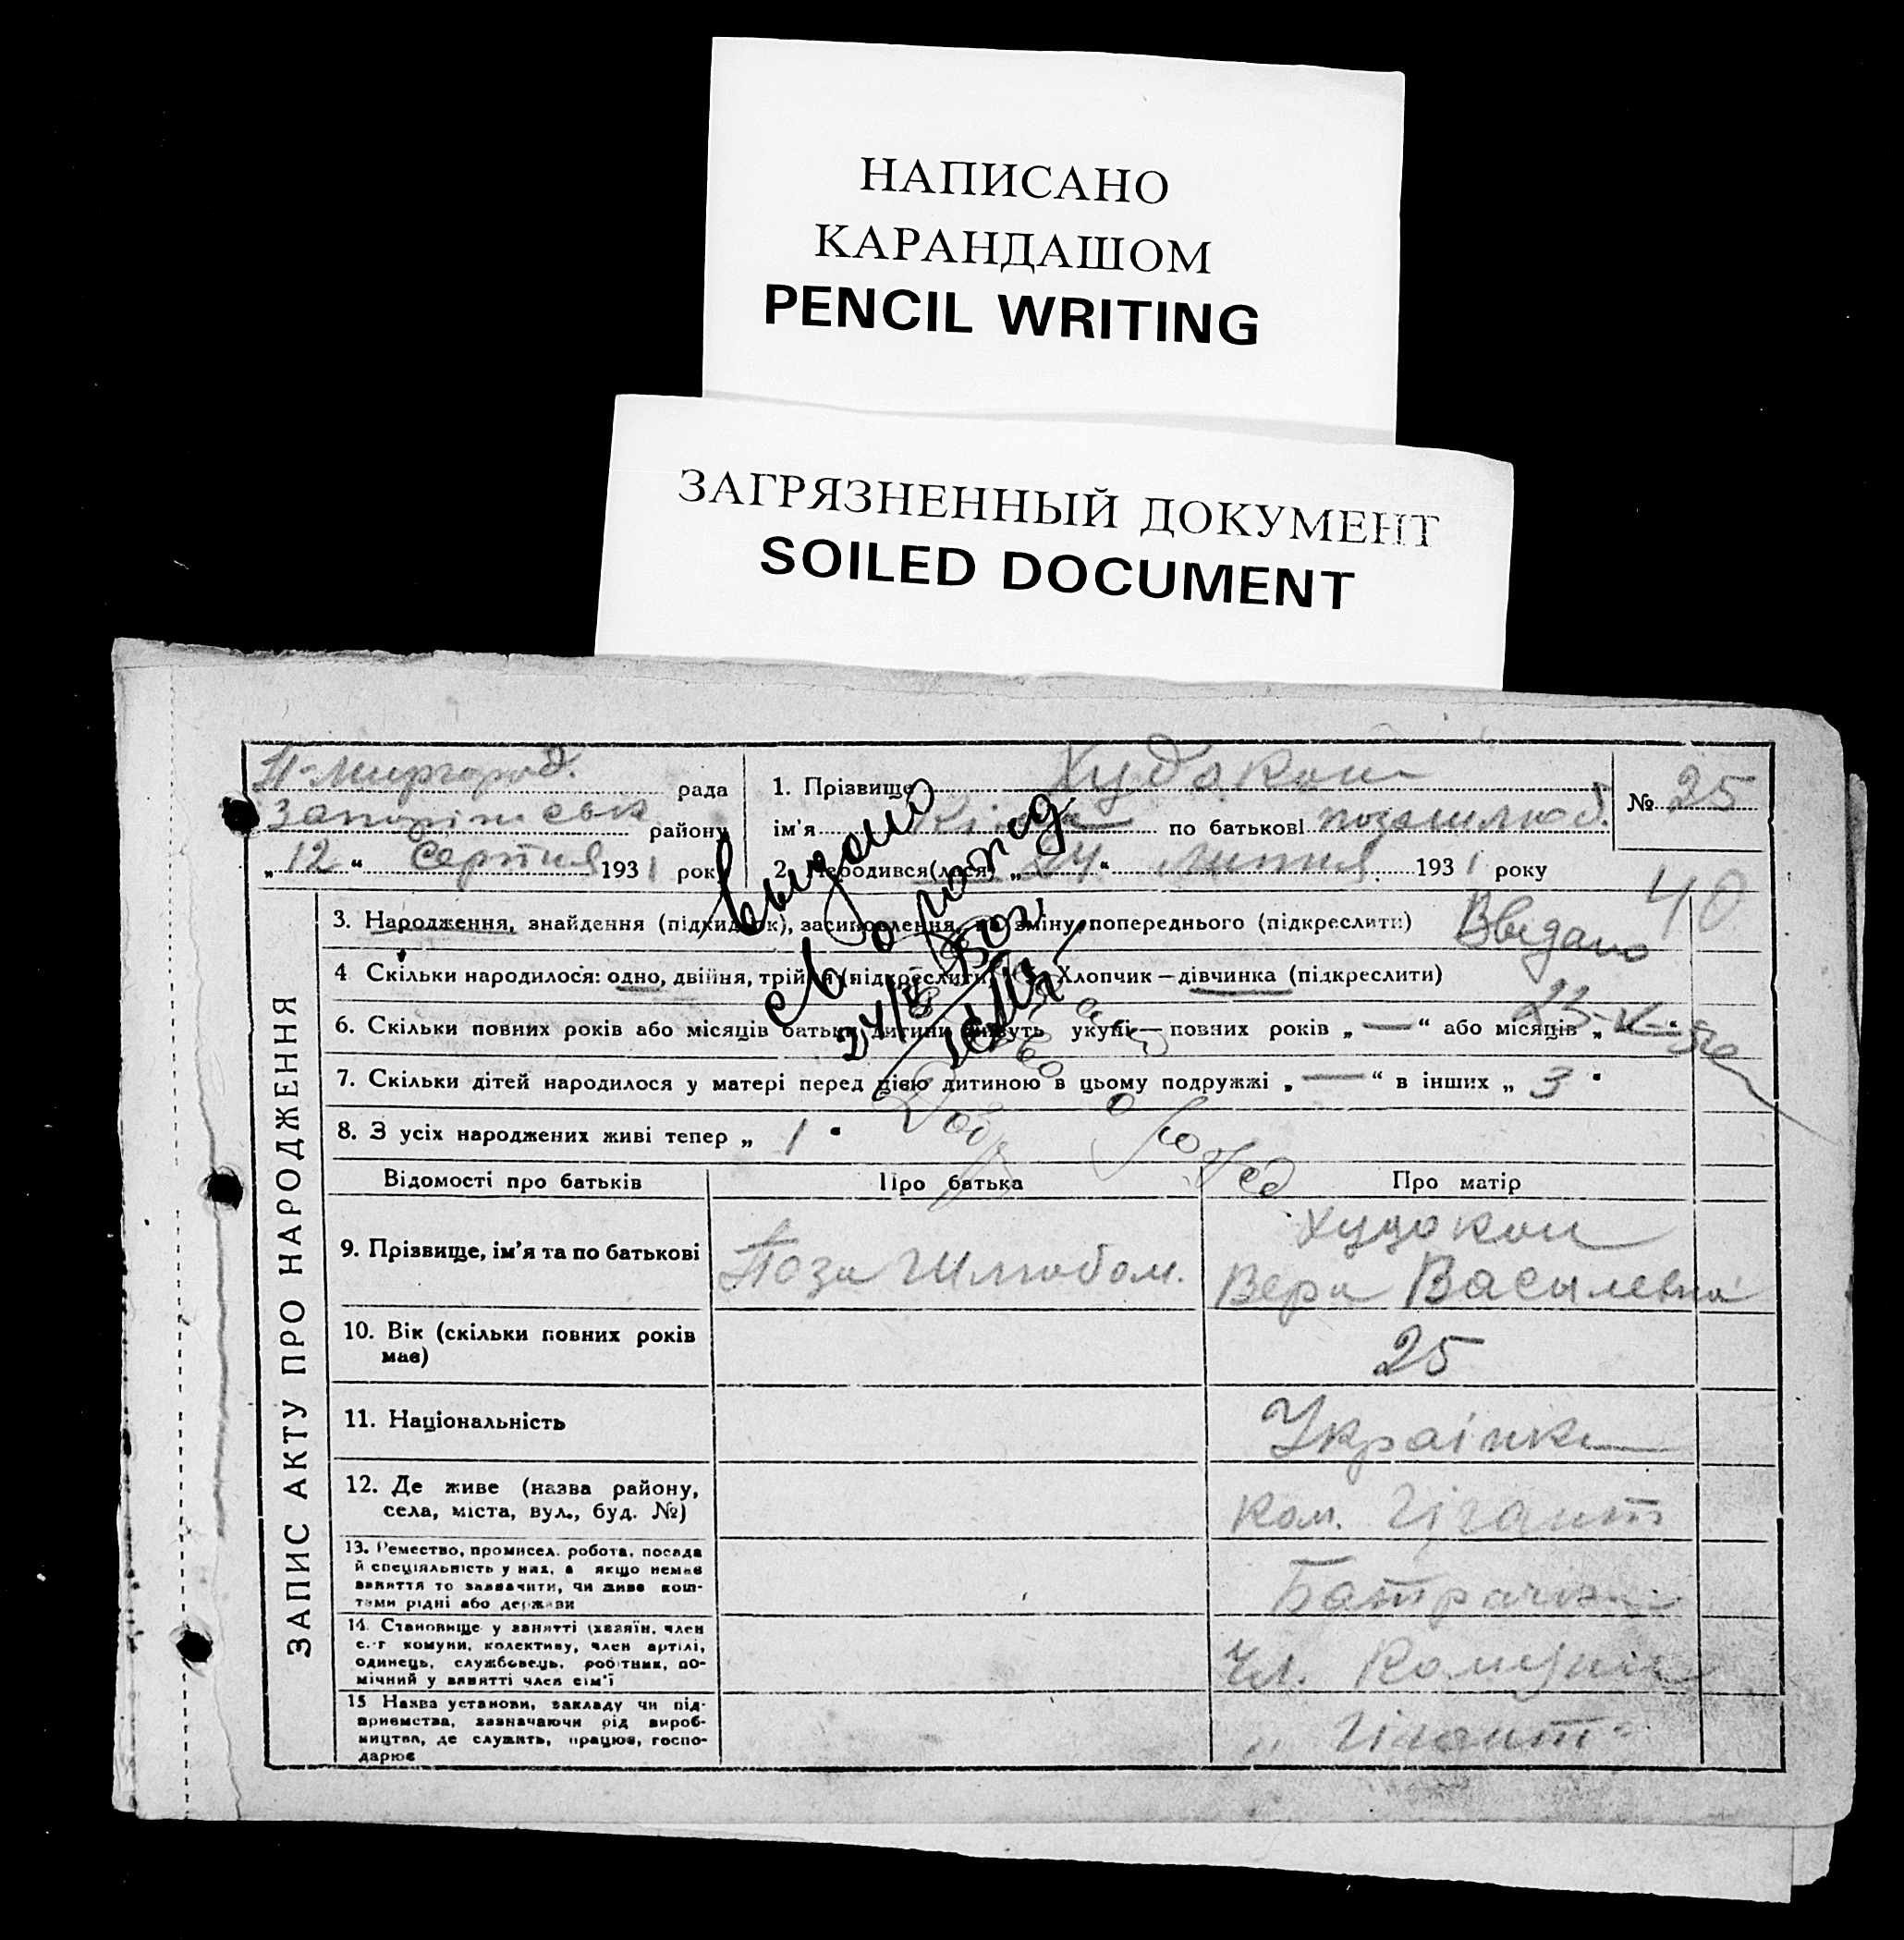 НАПИСАНО
КАРАНДАШОМ
PENCIL WRITING
ЗАГРЯЗНЕННЫЙ ДОКУМЕНТ
SOILED DOCUMENT
рада
району
„12“ Серпня 1931 рок
1. Прізвище Худокош
ім'я по батькові позашлюб.
2. Народився(лася) „24“ Липня 1931 року
№ 25
40
ЗАПИС АКТУ ПРО НАРОДЖЕННЯ
3. Народження, знайдення (підкидьок), засиновлення, на зміну попереднього (підкреслити)
Видано
4 Скільки народилося: одно, двійня, трійня (підкреслити) Хлопчик—дівчинка (підкреслити)
6. Скільки повних років або місяців батьки дитини живуть укупі— повних років „—“ або місяців „
7. Скільки дітей народилося у матері перед цією дитиною в цьому подружжі „—“ в інших „3“
8. З усіх народжених живі тепер „1“
выдано
Відомості про батьків Про батька Про матір
9. Прізвище, ім'я та по батькові
Поза шлюбом.
Худокош
Вера Василевна
10. Вік (скільки повних років має)
25
11. Національність
Українка
12. Де живе (назва району,
села, міста, вул., буд. №)
ком. Гігант
13. Ремество, промисел, робота, посада
й спеціяльність у них, а якщо немає
заняття то зазначити, чи живе кош-
тами рідні або держави
14. Становище у занятті (хазяїн, член
с.-г комуни, колективу, член артілі,
одинець, службовець, робітник, по-
мічний у занятті член сім'ї
Чл. Комуни
15 Назва установи, закладу чи під-
приємства, зазначаючи рід вироб-
ництва, де служить, працює, госпо-
дарює
„Гігант“